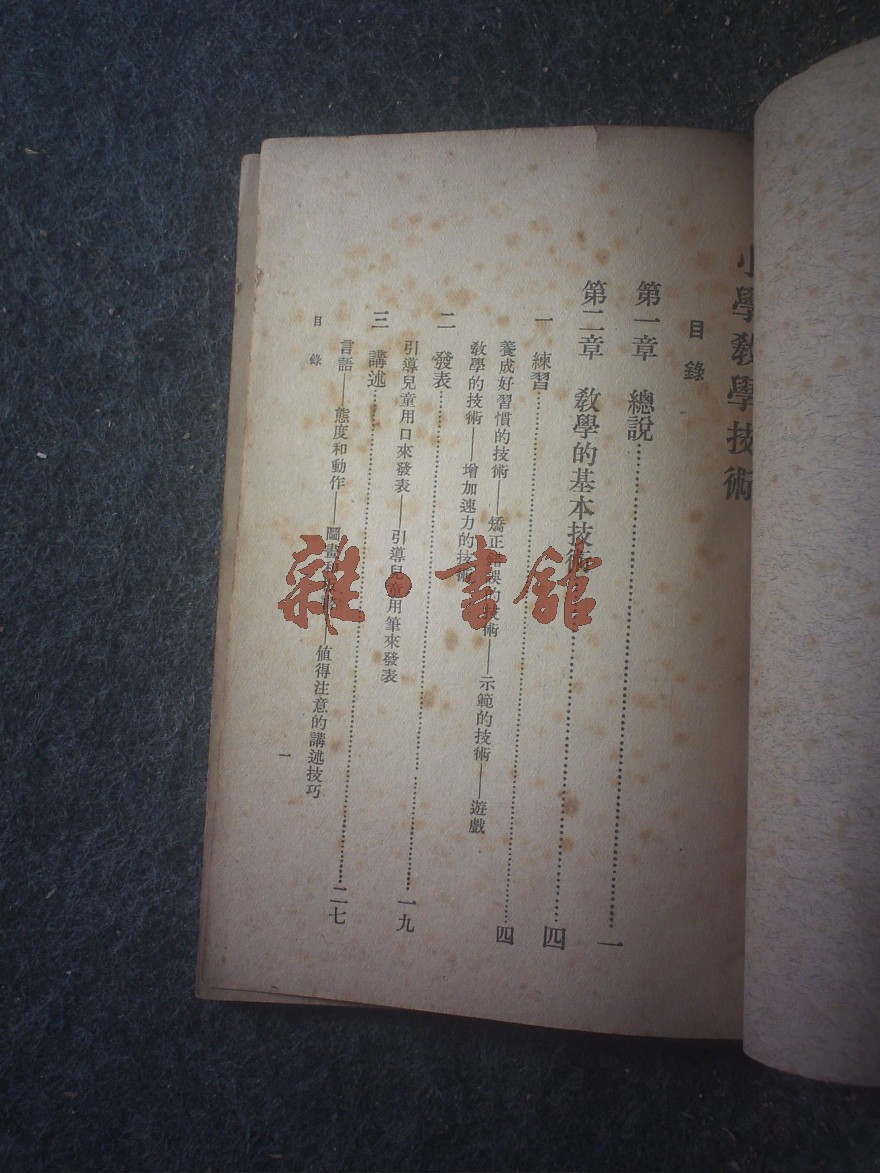 小學教學技術
目錄
第一章 總說……一
第二章 教學的基本技術……四
一 練習……四
養成好習慣的技術——矯正錯誤的技術——示範的技術——遊戲
教學的技術——增加速力的技術
二 發表……一九
引導兒童用口來發表——引導兒童用筆來發表
三 講述……二七
言語——態度和動作——圖畫和——值得注意的講述技巧
目錄
一
雜·書館